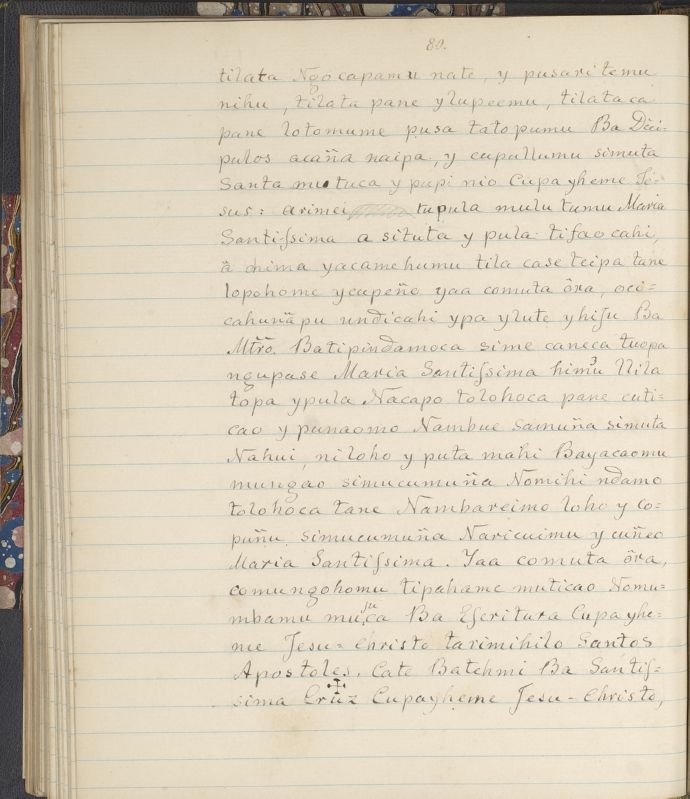 80.
tilata Ngocapamu nate, y pusari temu
nihu, tĩlata pane ylupeemu, tilataca
pane lotomume pusa tato pumu Ba Dĩci=
pulos acaña naipa, y cupullumu simuta
Santa mutuca y pupi nio Cupayheme Je=
sus: arimei tupula mulu tumu Maria
Santiſsima a situta y pula tifao cahi,
chima yacamehumu tila case teipa tane
lopohome ycupeñe yaa comuta ôra, oci=
cahuñapu undicahi ypa ylute yhiſu Ba
Mtrõ. Batipindamoca sime caneca tuopa
ngupase Maria Santiſsima himu Nila
topa ypula Nacapo tolohoca pane cuti=
cao y punaomo Nambue samuña simuta
Nahui, niloho y puta mahi Bayacaomu
mungao simucumuña Nomihi ndamo
tolohoca tane Nambareimo loho y co=
puñu, simucumuña Naricuimu y cuñeo
Maria Santiſsima. Yaa comuta ôra,
comungohomu tipahame muticao Nomu=
mbamu musuca Ba Eſcritura Cupayhe=
me Jesu=Christo tarimihilo Santos
Apostoles. Cate Batehmi Ba Santiſ=
sima Cruz Cupayheme Jesu-Christo,